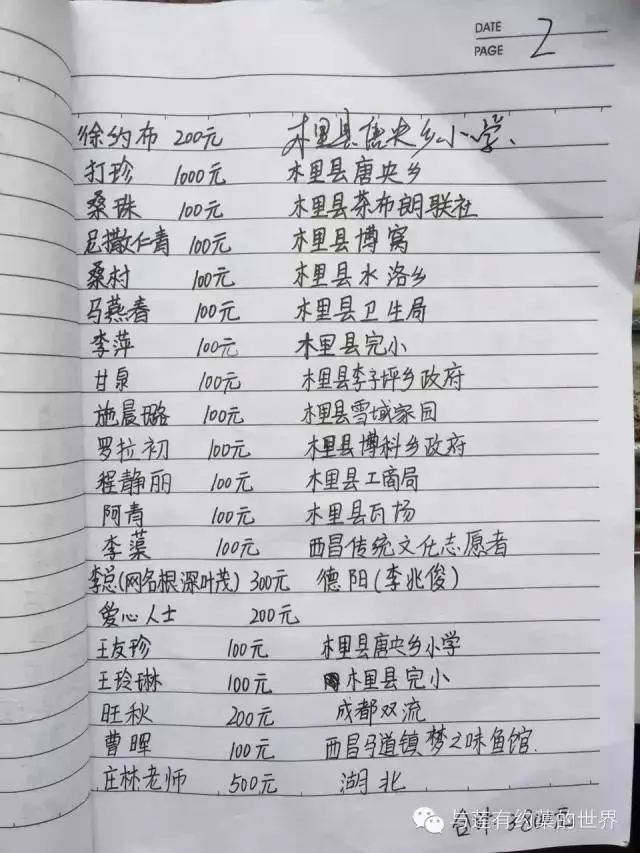 DATE
PAGE 2
徐约布 200元 木里县唐央乡小学、
打珍 1000元 木里县唐央乡
桑珠 100元 木里县茶布朗联社
尼撒仁青 100元 木里县博窝
桑村 100元 木里县水洛乡
马燕春 100元 木里县卫生局
李萍 100元 木里县完小
甘泉 100元 木里县李子坪乡政府
施晨璐 100元 木里县雪域家园
罗拉初 100元 木里县博科乡政府
程静丽 100元 木里县工商局
阿青 100元 木里县瓦扬
李蕖 100元 西昌传统文化志愿者
李总(网名根深叶茂) 300元 德阳(李兆俊)
爱心人士 200元
王友珍 100元 木里县唐央乡小学
王玲琳 100元 木里县完小
旺秋 200元 成都双流
曹晖 100元 西昌马道镇梦之味鱼馆.
庄林老师 500元 湖北
合计
与莲有约蕖的世界